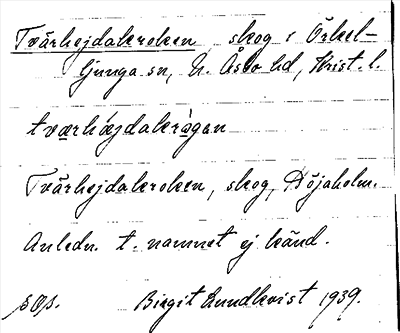 Tvärhejdakroken, skog i Örkel-
ljunga sn, N. Åsbo hd, Krist. l.
tværhæjdakrågan
Tvärhejdakroken, skog, Höjaholm.
Anledn. t. namnet ej känd.
Birgit Lundkvist 1939.